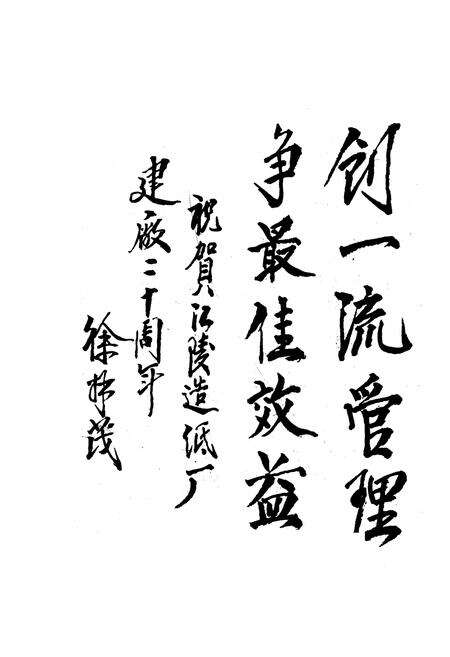 创一流管理
争最佳效益
祝賀江陵造纸厂
建廠二十周年
徐